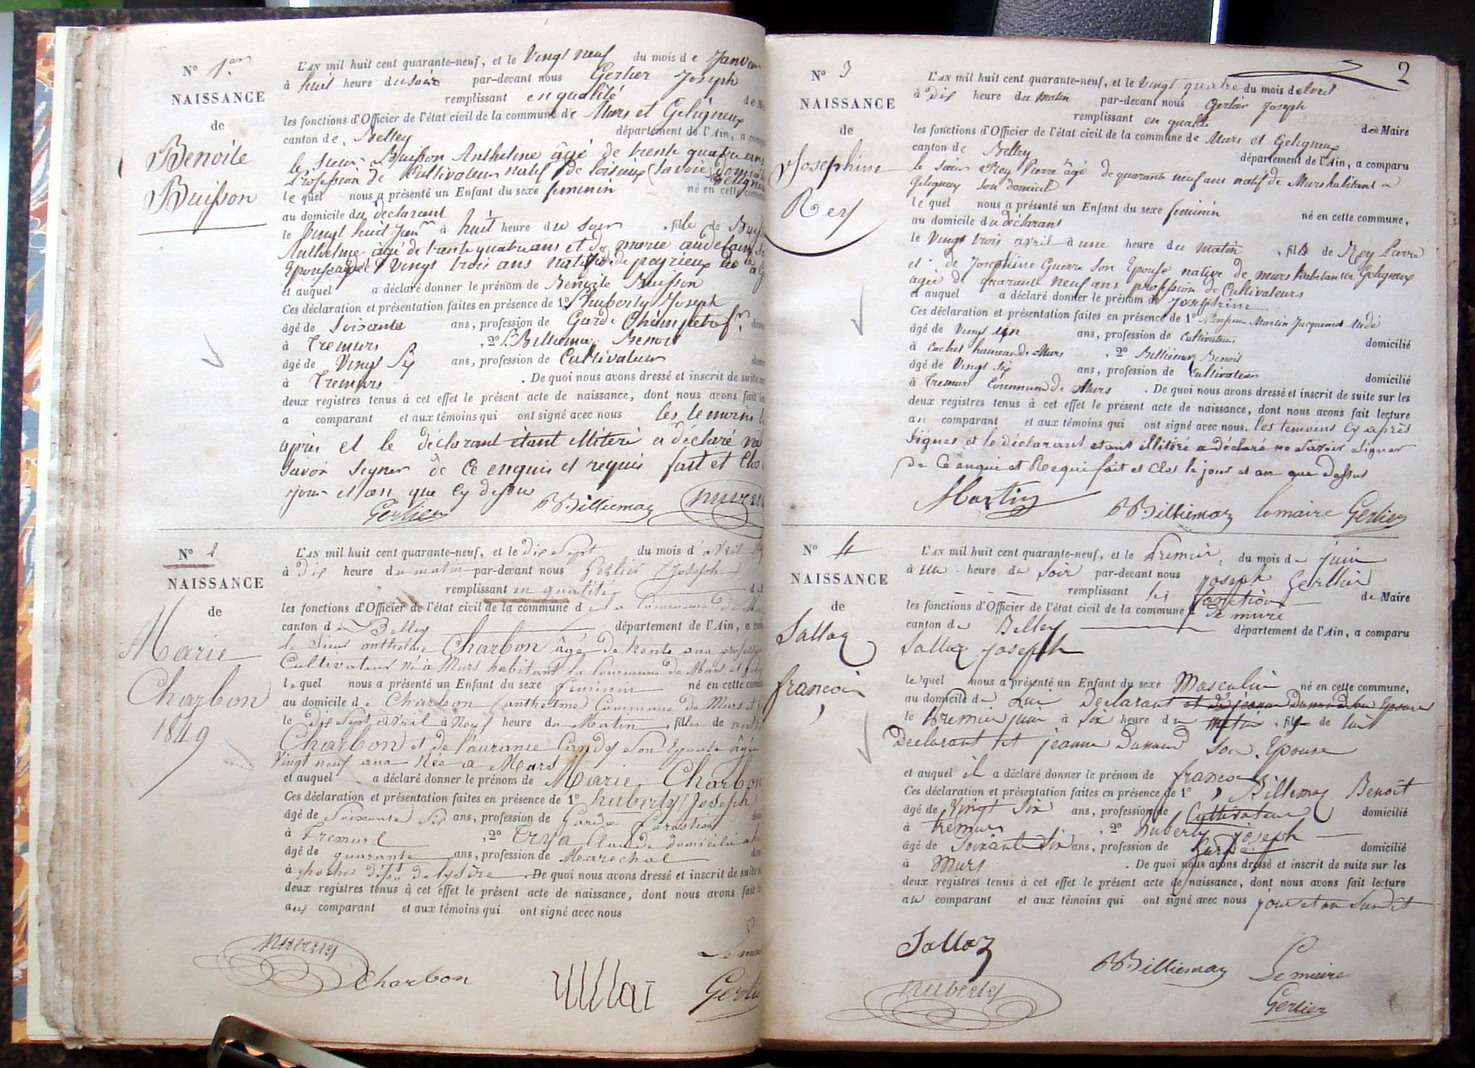 N° 1er
NAISSANCE
de
Benoite
Buisson
L'AN mil huit cent quarante-neuf, et le Vingt neuf du mois de Janv
à huit heure du soir par-devant nous Gerlier Joseph
remplissant en qualité
les fonctions d'Officier de l'état civil de la commune de Murs et Gélignieux
canton de Belley département de l'Ain, a
le sieur Buisson Anthelme âgé de trente quatre ans
Profession de Cultivateur natif de
le quel nous a présenté un Enfant du sexe feminin né en cette
au domicile du déclarant
le vingt huit Janr à huit heure du soir fille de
Anthelme âgé de trente quatre ans et de marie
Epouse agée Vingt trois ans native de peyrieux
et auquel a déclaré donner le prénom de Benoite Buisson
Ces déclaration et présentation faites en présence de 1° huberly Joseph
âgé de Soixante ans, profession de Garde Champetre
à Tremurs , 2° Billiemaz Benoit
âgé de Vingt Six ans, profession de Cultivateur
à Tremurs . De quoi nous avons dressé et inscrit de suite
deux registres tenus à cet effet le présent acte de naissance, dont nous avons fait
a comparant et aux témoins qui ont signé avec nous les temoins
après et le déclarant étant illitéré a déclaré
savoir signer de ce enquis et requis fait et clos
jour et an que cy dessus
Gerlier BBilliemaz huberly
N° 2
NAISSANCE
de
Marie
Charbon
1849
L'AN mil huit cent quarante-neuf, et le dix Sept du mois d'avril
à Dix heure du matin par-devant nous Gerlier Joseph
remplissant en qualité
les fonctions d'Officier de l'état civil de la commune de la Commune de
canton de Belley département de l'Ain, a
le Sieur anthelme Charbon âgé de trente ans
Cultivateur né à Murs habitant la Commune de Murs et
lequel nous a présenté un Enfant du sexe Feminin né en cette
au domicile de Charbon anthelme Commune de Murs et
le Dix Sept avril à Neuf heure du Matin fille de
Charbon et de Son Epouse âgée
Vingt neuf ans Née à Murs
et auquel a déclaré donner le prénom de Marie Charbon
Ces déclaration et présentation faites en présence de 1° huberly Joseph
âgé de Soixante Six ans, profession de Garde
à Tremurs , 2° Claude domicilié
âgé de quarante ans, profession de Maréchal
à de lisère . De quoi nous avons dressé et inscrit de suite
deux registres tenus à cet effet le présent acte de naissance, dont nous avons fait
aux comparant et aux témoins qui ont signé avec nous
huberly Charbon
Gerlier
2
N° 3
NAISSANCE
de
Josephine
Rey
L'AN mil huit cent quarante-neuf, et le Vingt quatre du mois d'avril
à dix heure du matin par-devant nous Gerlier Joseph
remplissant en qualité de Maire
les fonctions d'Officier de l'état civil de la commune de Murs et Geligneux
canton de Belley département de l'Ain, a comparu
le sieur Rey Pierre âgé de quarante neuf ans natif de Murs habitant a
Gelignay Son domicil
le quel nous a présenté un Enfant du sexe feminin né en cette commune,
au domicile du déclarans
le Vingt trois avril à une heure du matin fils de Rey Pierre
et de Josephine Guerre Son Epouse native de murs habitante Geligneux
agée de quarante neuf ans profession de Cultivateurs
et auquel a déclaré donner le prénom de Josephine
Ces déclaration et présentation faites en présence de 1° Martin Jacquemet
âgé de Vingt un ans, profession de Cultivateur domicilié
à hameau de Murs , 2° Billiemaz Benoit
âgé de Vingt Six ans, profession de Cultivateur domicilié
à Tremurs Commune de Murs . De quoi nous avons dressé et inscrit de suite sur les
deux registres tenus à cet effet le présent acte de naissance, dont nous avons fait lecture
au comparant et aux témoins qui ont signé avec nous. les temoins cy après
signes et le déclarant etant illitéré a déclaré ne savoir signer
de Ce enqui et Requi fait et Clos le jour et an que dessus
Martin BBilliemaz le maire Gerlier
N° 4
NAISSANCE
de
Salloz
francois
L'AN mil huit cent quarante-neuf, et le Premier du mois de juin
à une heure du soir par-devant nous joseph Gerlier
remplissant les fonctions de Maire
les fonctions d'Officier de l'état civil de la commune de murs
canton de Belley département de l'Ain, a comparu
Salloz joseph
le quel nous a présenté un Enfant du sexe Masculin né en cette commune,
au domicile de lui Declarant et de jeanne Son Epouse
le Premier juin à Six heure du matin fils de luit
Declarant et jeanne Son Epouse
et auquel il a déclaré donner le prénom de francois
Ces déclaration et présentation faites en présence de 1° Billiemaz Benoit
âgé de Vingt Six ans, profession de Cultivateur domicilié
à tremurs , 2° huberly joseph
âgé de Soixante Six ans, profession de Garde domicilié
à Murs . De quoi nous avons dressé et inscrit de suite sur les
deux registres tenus à cet effet le présent acte de naissance, dont nous avons fait lecture
au comparant et aux témoins qui ont signé avec nous jour et an Susdit
Salloz BBilliemaz Le maire
huberly Gerlier